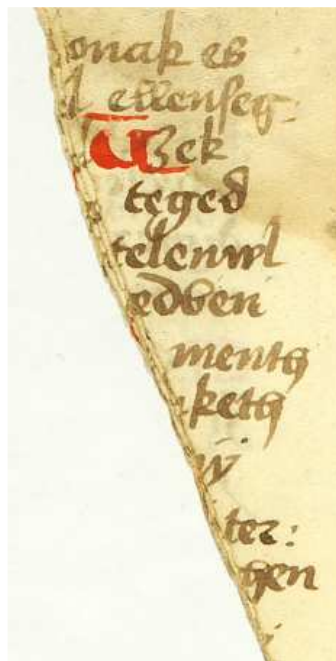 onak es
ellenseg
Uʒek
teged
telenwl
edben
menth
keth
ÿ
ter:
gen